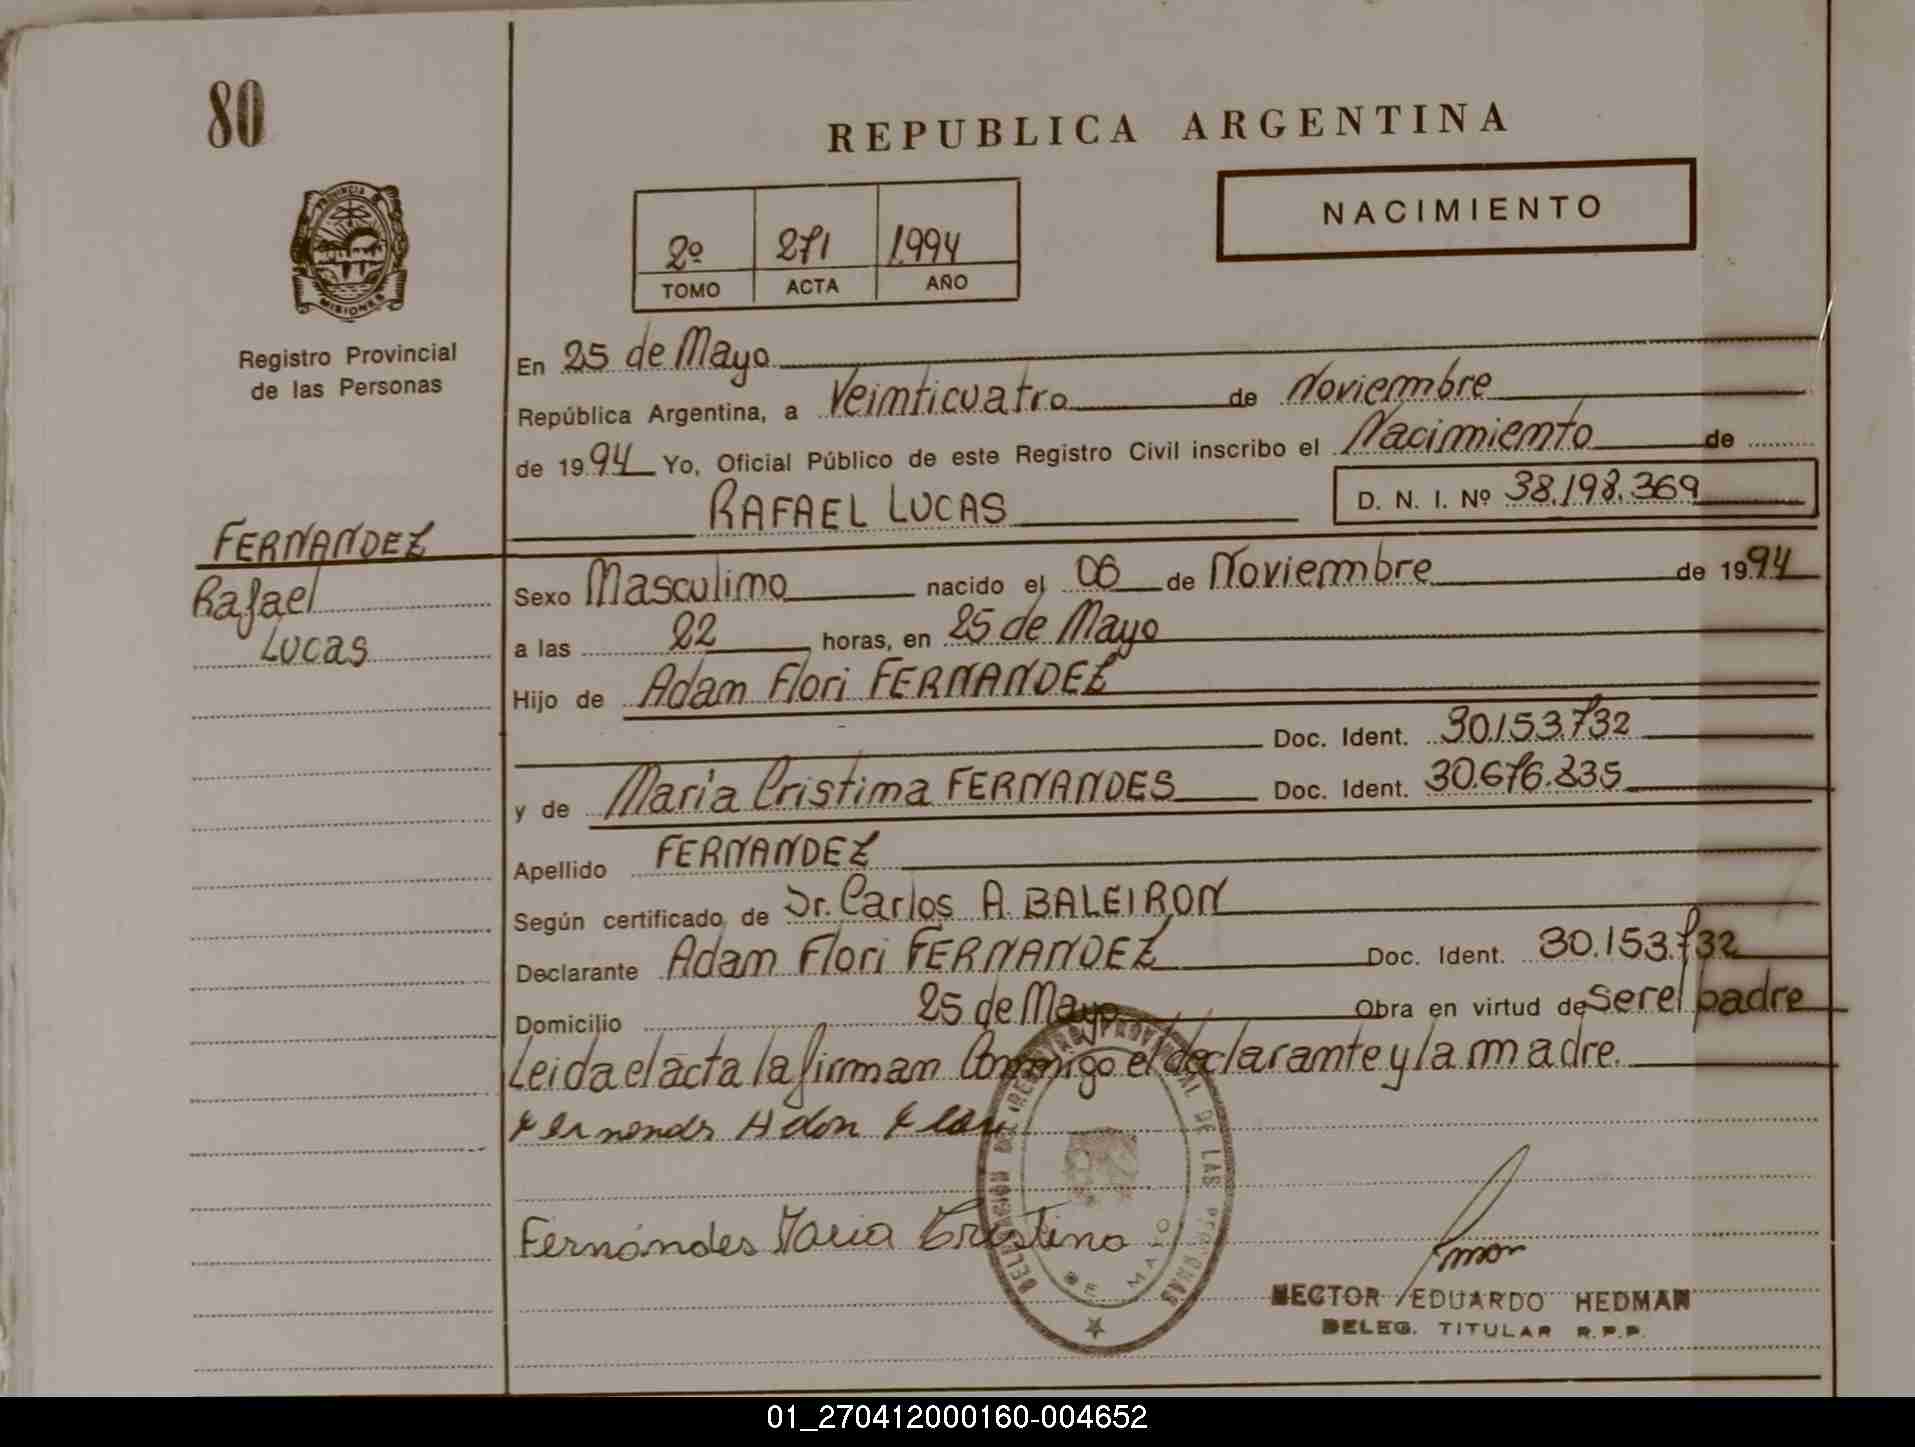 80
REPUBLICA ARGENTINA
NACIMIENTO
2º 271 1.994
TOMO ACTA AÑO
PROVINCIA DE
MISIONES
Registro Provincial
de las Personas
En 25 de Mayo
República Argentina, a Veinticuatro de Noviembre
de 1994 Yo, Oficial Público de este Registro Civil inscribo el Nacimiento de
RAFAEL LUCAS D. N. I. Nº 38.198.369
FERNANDEZ
Rafael
Lucas
Sexo Masculino nacido el 06 de Noviembre de 1994
a las 22 horas, en 25 de Mayo
Hijo de Adam Flori FERNANDEZ
Doc. Ident. 30.153.732
y de Maria Cristina FERNANDES Doc. Ident. 30.676.235
Apellido FERNANDEZ
Según certificado de Dr. Carlos A. BALEIRON
Declarante Adam Flori FERNANDEZ Doc. Ident. 30.153.732
Domicilio 25 de Mayo Obra en virtud de ser el padre
Leida el acta la firman Conmigo el declarante y la madre.
Fernández Adan Flori
Fernándes Maria Cristina
DELEGACION DEL REGISTRO PROVINCIAL DE LAS PERSONAS
DE MAYO
HECTOR EDUARDO HEDMAN
DELEG. TITULAR R.P.P.
01_270412000160-004652